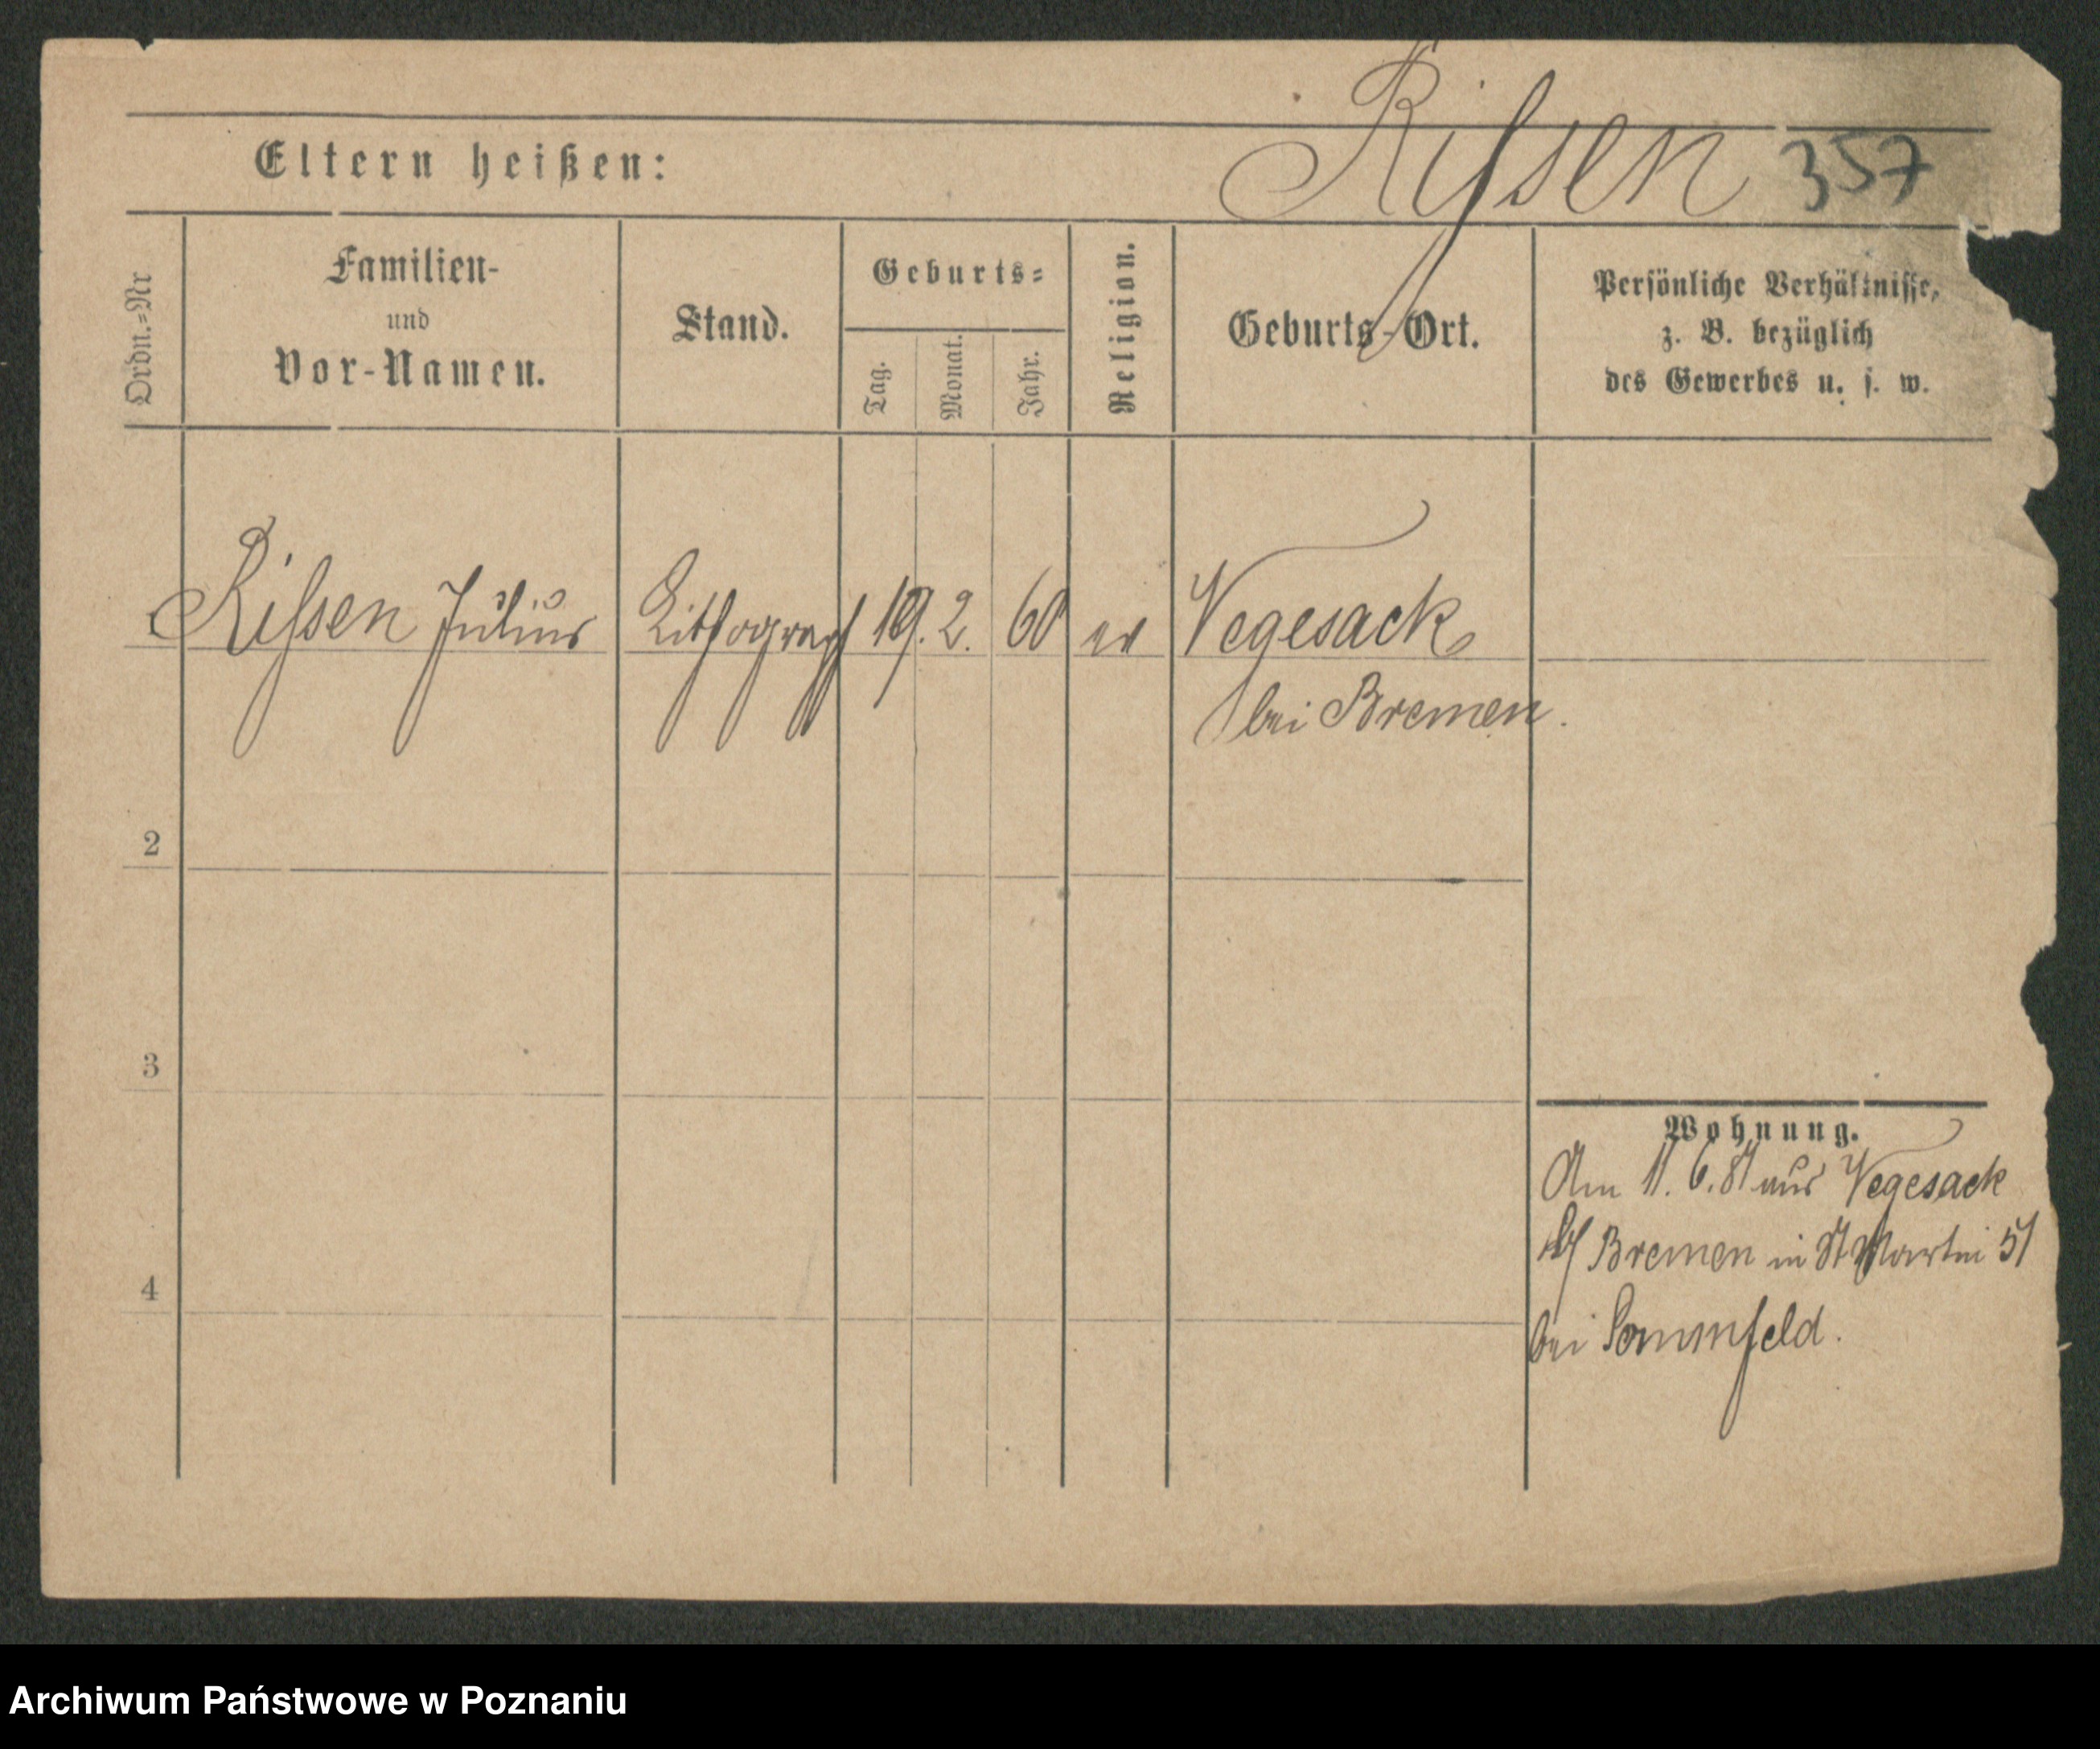 Rissen 357
Eltern heißen:
Ordn.-Nr
Familien-
und
Vor-Namen.
Stand.
Geburts-
Tag.
Monat.
Jahr.
Religion.
Geburts-Ort.
Persönliche Verhältnisse,
z. B. bezüglich
des Gewerbes u. s. w.
Rissen Julius Lithograph 19. 2. 60 ev Vegesack
bei Bremen.
2
3
4
Wohnung.
Am 11. 6. 87 aus Vegesack
Bremen in St Martin 51
bei Sommfeld.
Archiwum Państwowe w Poznaniu